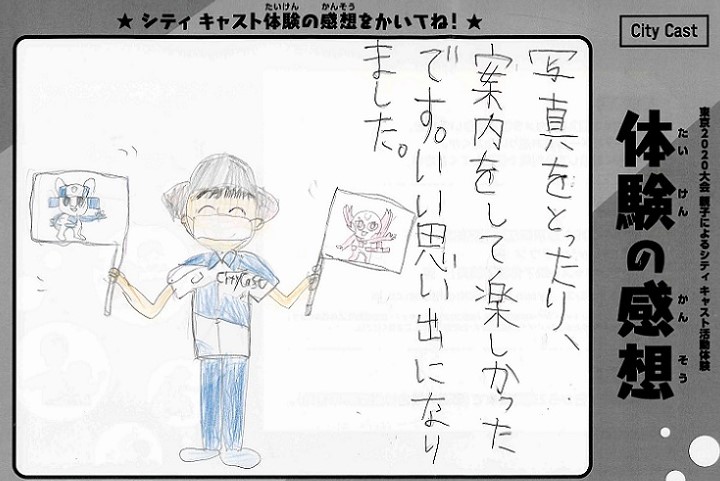 ★ シティ キャスト体験の感想をかいてね! ★
たいけん かんそう
City Cast
東京2020大会 親子によるシティ キャスト活動体験
体験の感想
たい けん かん そう
写真をとったり、
案内をして楽しかった
です。いい思い出になり
ました。
City Cast